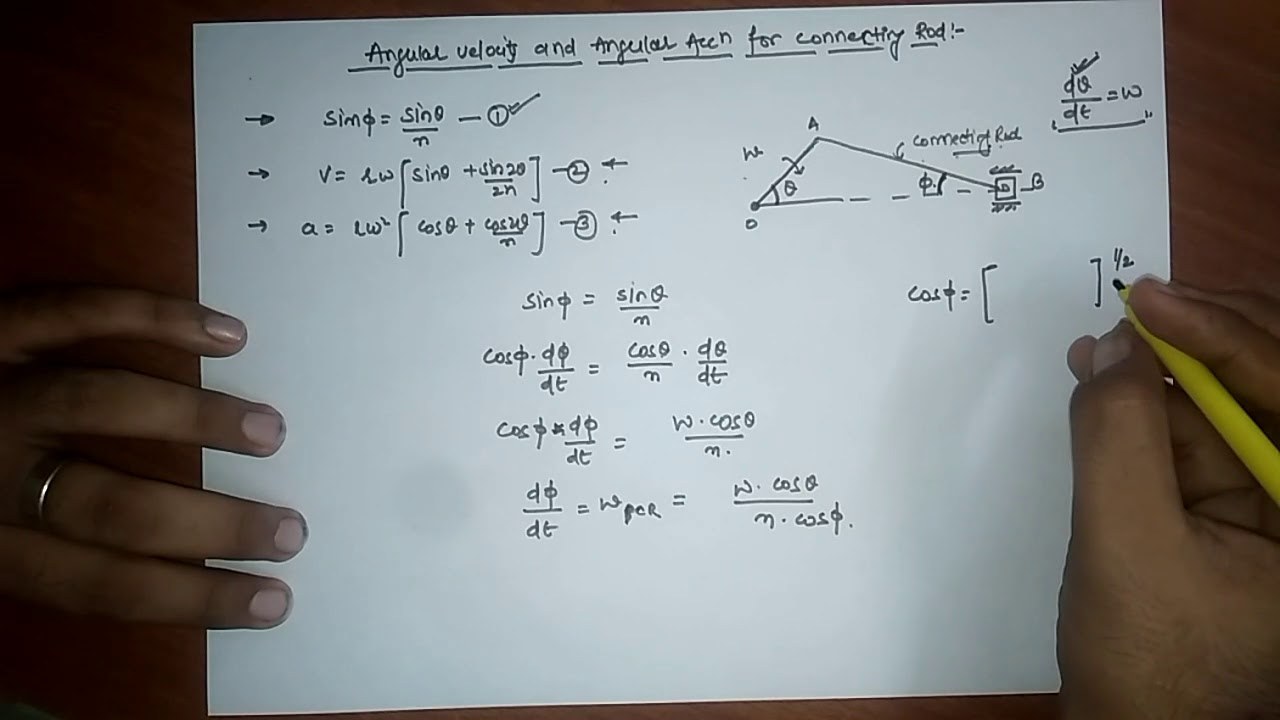 Angular velocity and Angular Accn for connecting Rod:-
→ sinϕ = sinθ/n — ①
→ V = rω[sinθ + sin2θ/2n] — ②
→ a = rω²[cosθ + cos2θ/n] — ③
dθ/dt = ω
A
connecting Rod
ω
θ
ϕ
B
O
sinϕ = sinθ/n
cosϕ · dϕ/dt = cosθ/n · dθ/dt
cosϕ * dϕ/dt = ω · cosθ/n.
dϕ/dt = ω = ω · cosθ/n · cosϕ.
cosϕ = [ ]^1/2